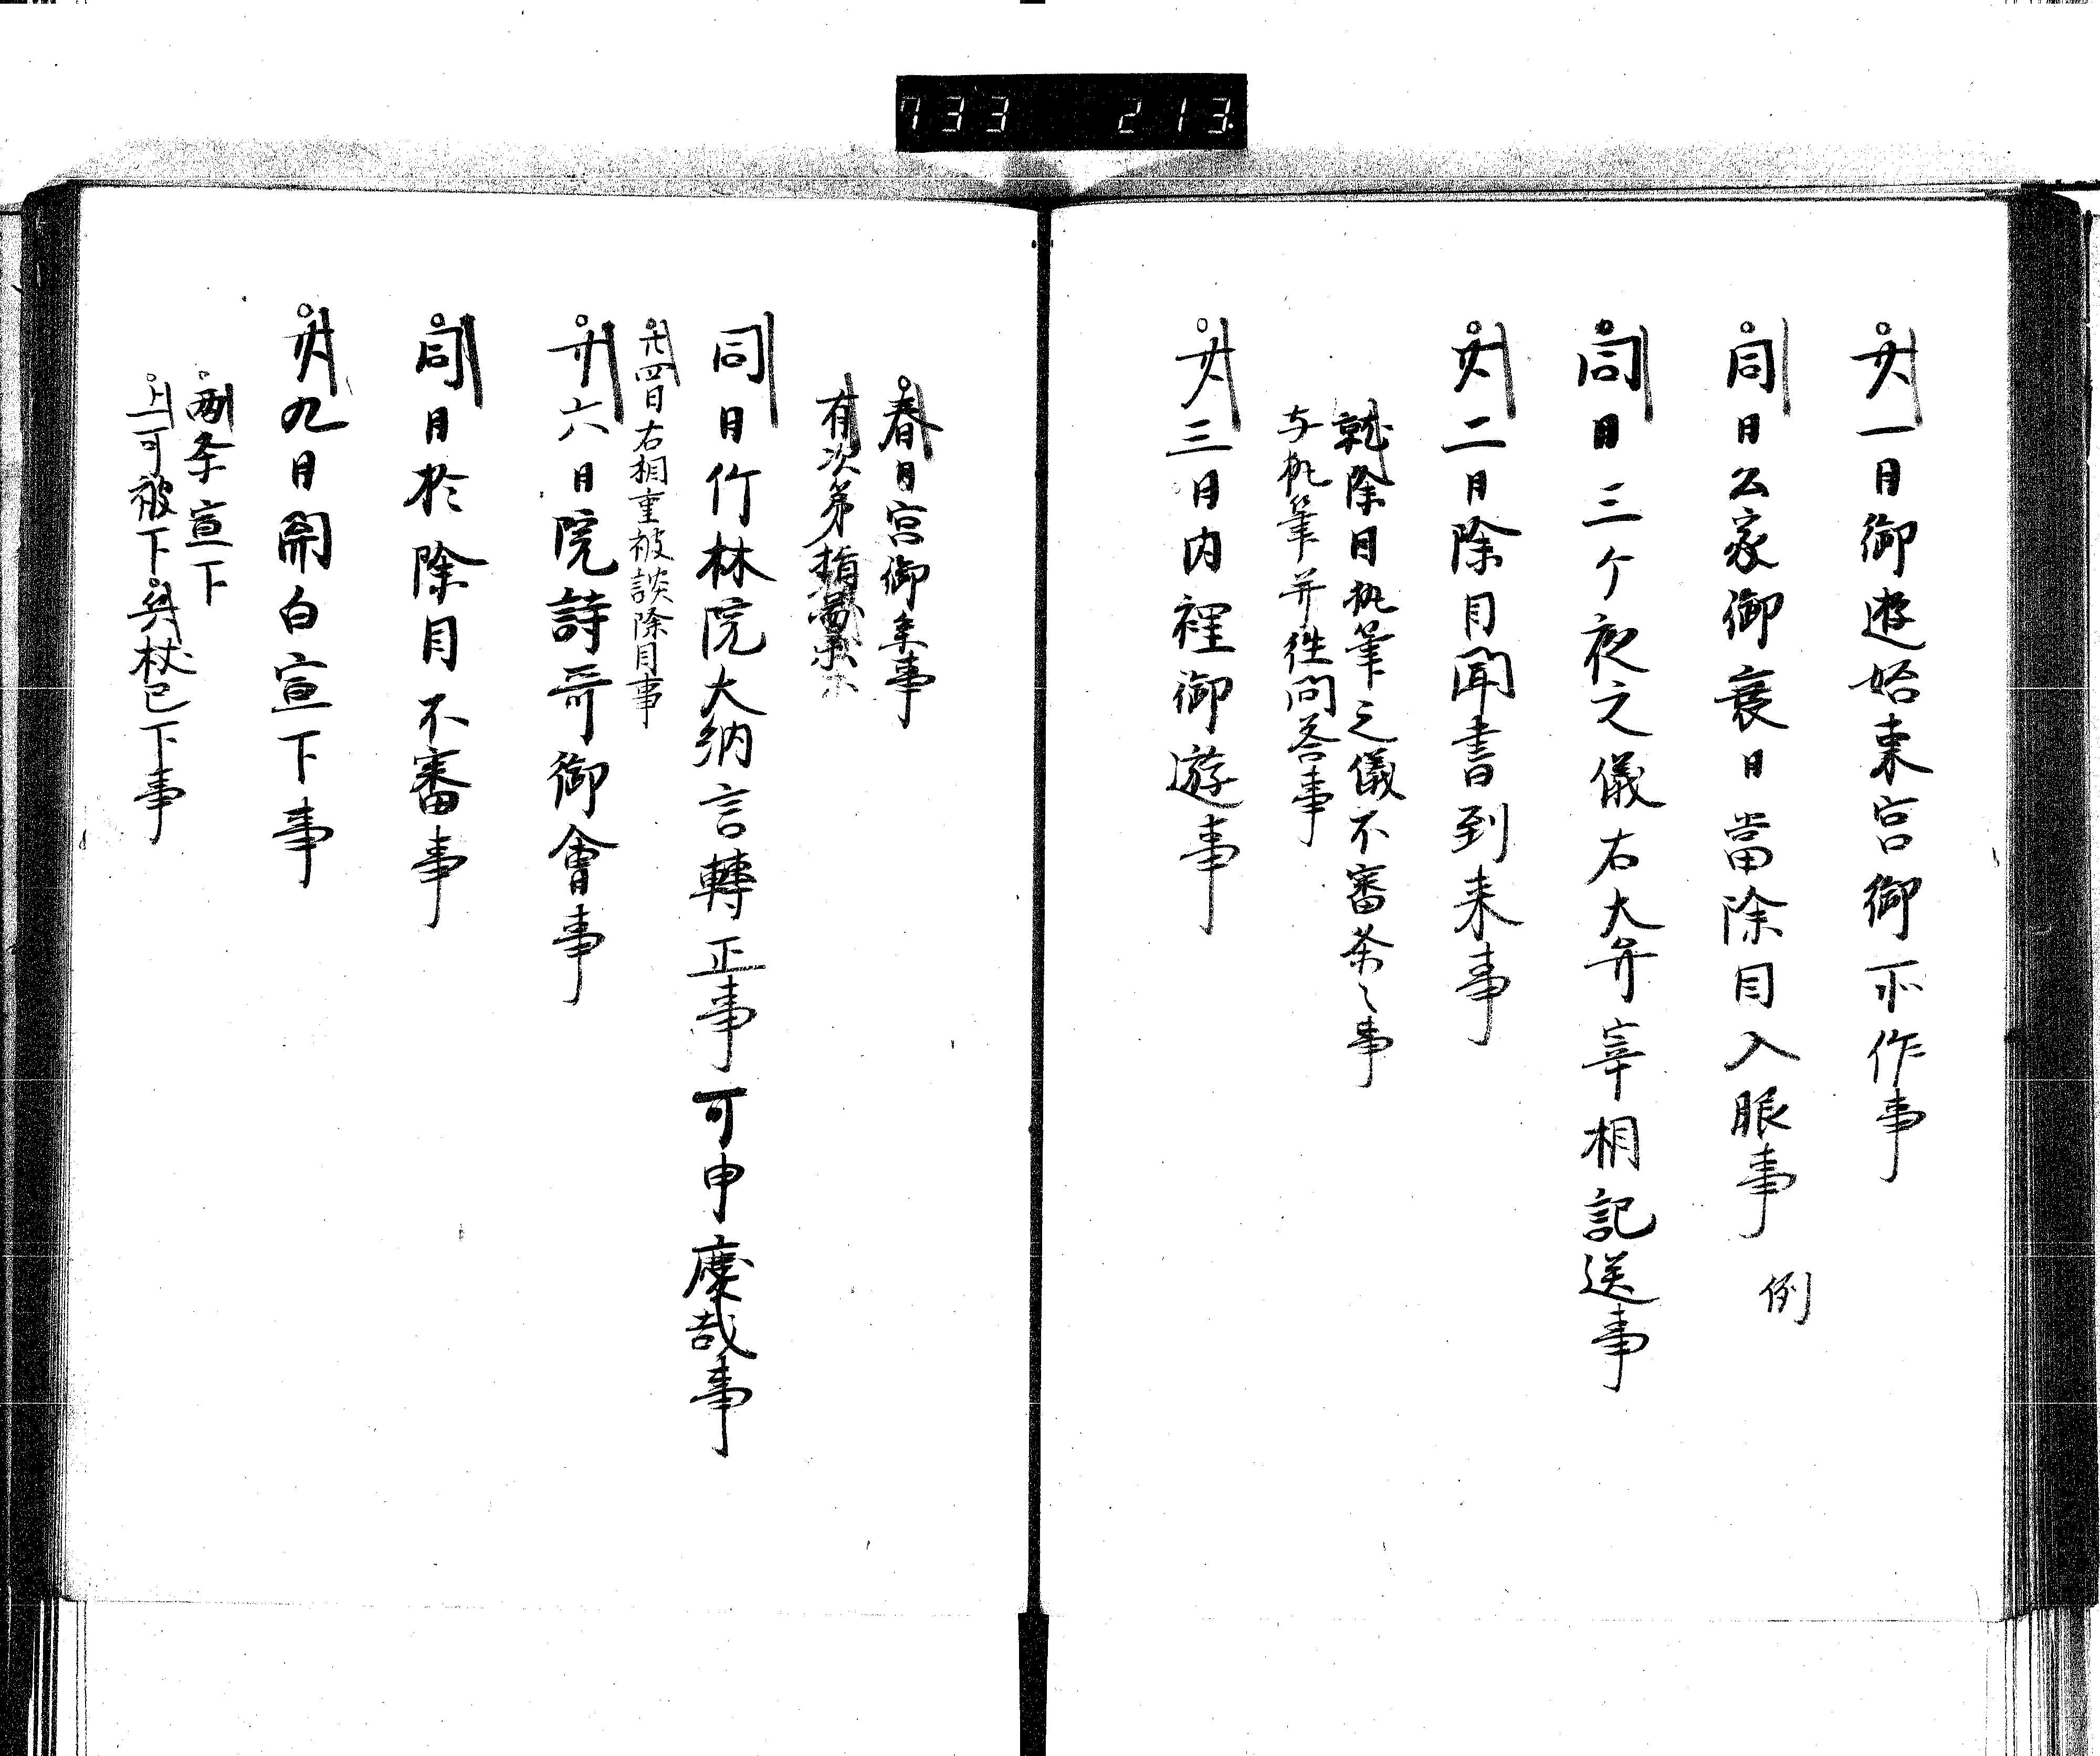 733 213
廿一日御遊始東宮御所作事
同日公家御衰日當除目入眼事 例
同日三ケ夜之儀右大弁宰相記送事
廿二日除目聞書到来事
就除目執筆之儀不審条々事
与執筆并往問荅事
廿三日内裡御遊事
春日宮御事事
有次第指圖
同日竹林院大納言轉正事可申慶哉事
廿四日右相重被談除目事
廿六日院詩哥御會事
同日於除目不審事
廿九日關白宣下事
両条宣下
上一可被下兵杖已下事